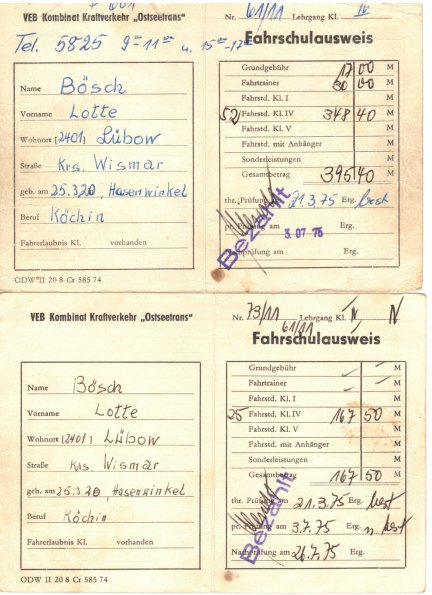 VEB Kombinat Kraftverkehr „Ostseetrans"
Tel. 5825 9⁰⁰-11⁰⁰ u. 15⁰⁰-17⁰⁰
Name Bösch
Vorname Lotte
Wohnort (2401) Lübow
Straße Krs. Wismar
geb. am 25.3.20, Hasenwinkel
Beruf Köchin
Fahrerlaubnis Kl. vorhanden
ODW II 20 8 Cr 585 74
Nr. 61/11 Lehrgang Kl. IV
Fahrschulausweis
Grundgebühr 17 00 M
Fahrtrainer 30 00 M
Fahrstd. Kl. I M
52 Fahrstd. Kl. IV 348 40 M
Fahrstd. Kl. V M
Fahrstd. mit Anhänger M
Sonderleistungen M
Gesamtbetrag 395 40 M
thr. Prüfung 21.3.75 Erg. best
pr. Prüfung am 3. 07 75 Erg.
Nachprüfung am Erg.
Bezahlt
VEB Kombinat Kraftverkehr „Ostseetrans"
Name Bösch
Vorname Lotte
Wohnort (2401) Lübow
Straße Krs. Wismar
geb. am 25.3.20, Hasenwinkel
Beruf Köchin
Fahrerlaubnis Kl. vorhanden
ODW II 20 8 Cr 585 74
Nr. 73/11 Lehrgang Kl. IV
61/11
Fahrschulausweis
Grundgebühr M
Fahrtrainer M
Fahrstd. Kl. I M
25 Fahrstd. Kl. IV 167 50 M
Fahrstd. Kl. V M
Fahrstd. mit Anhänger M
Sonderleistungen M
Gesamtbetrag 167 50 M
thr. Prüfung 21.3.75 Erg. best
pr. Prüfung am 3.7.75 Erg. best
Nachprüfung am 26.7.75 Erg.
Bezahlt